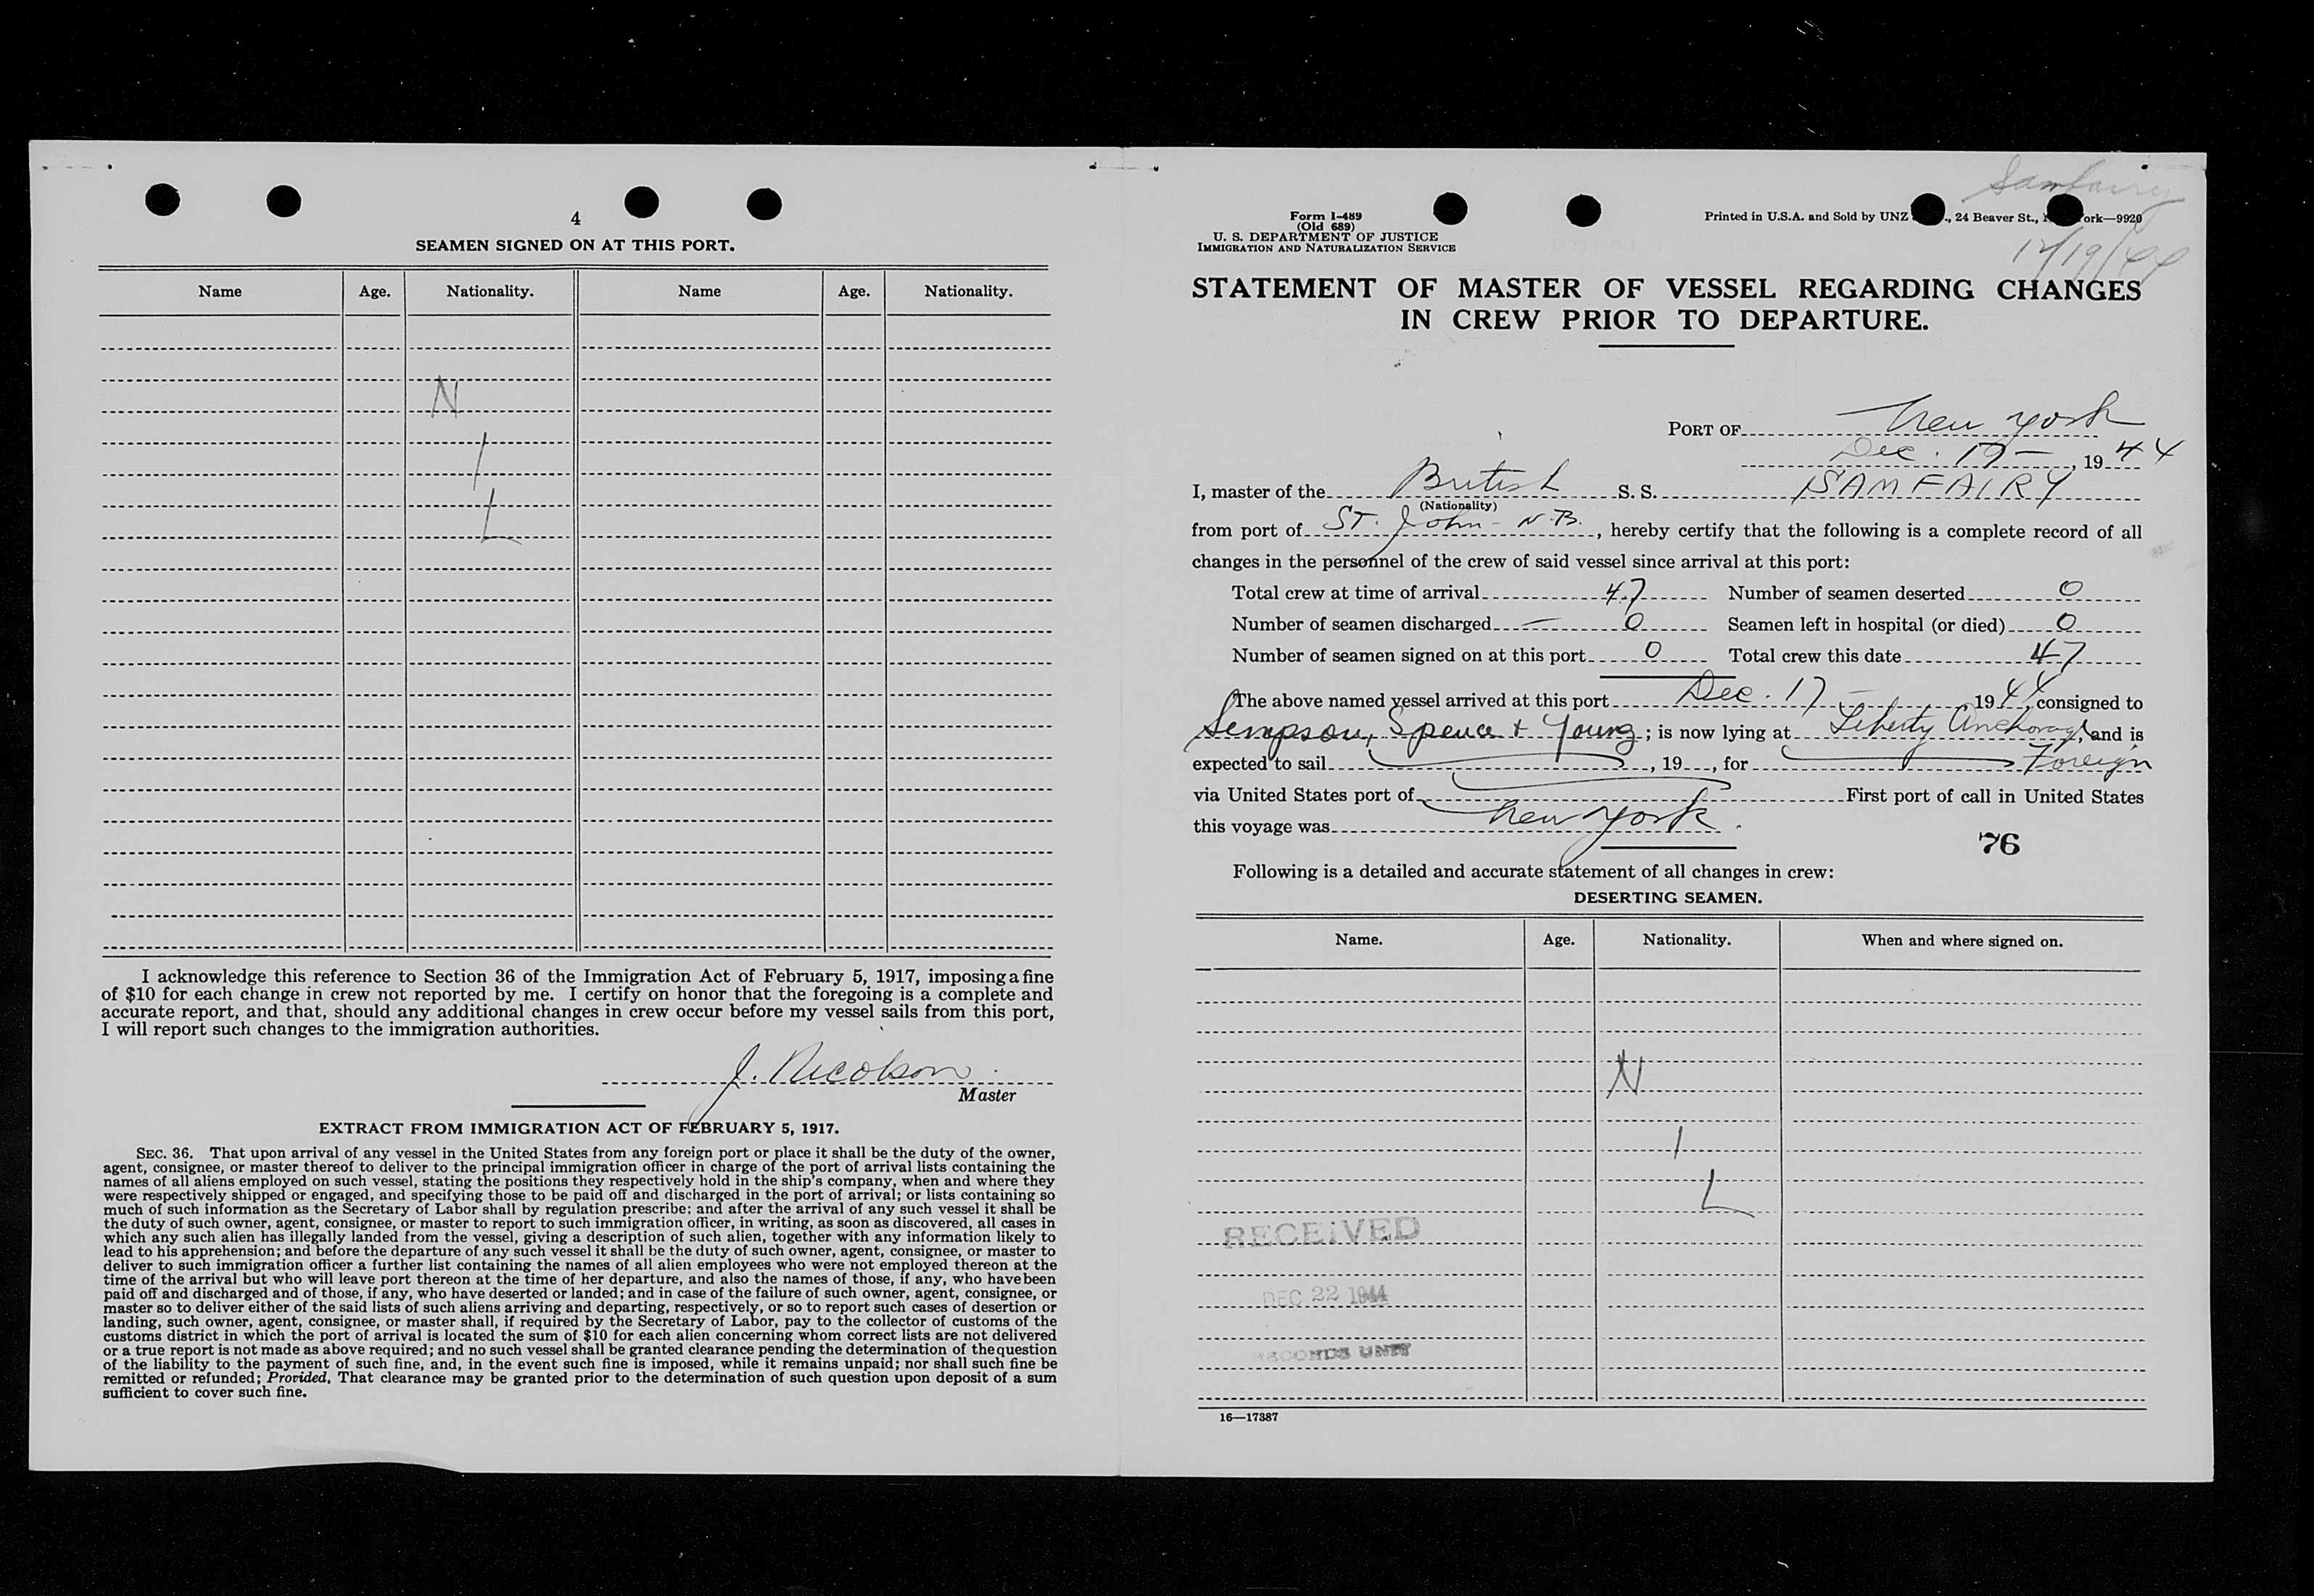 4
SEAMEN SIGNED ON AT THIS PORT.
Name Age. Nationality. Name Age. Nationality.
N
I
L
I acknowledge this reference to Section 36 of the Immigration Act of February 5, 1917, imposing a fine
of $10 for each change in crew not reported by me. I certify on honor that the foregoing is a complete and
accurate report, and that, should any additional changes in crew occur before my vessel sails from this port,
I will report such changes to the immigration authorities.
J. Nicolson
Master
EXTRACT FROM IMMIGRATION ACT OF FEBRUARY 5, 1917.
SEC. 36. That upon arrival of any vessel in the United States from any foreign port or place it shall be the duty of the owner,
agent, consignee, or master thereof to deliver to the principal immigration officer in charge of the port of arrival lists containing the
names of all aliens employed on such vessel, stating the positions they respectively hold in the ship's company, when and where they
were respectively shipped or engaged, and specifying those to be paid off and discharged in the port of arrival; or lists containing so
much of such information as the Secretary of Labor shall by regulation prescribe; and after the arrival of any such vessel it shall be
the duty of such owner, agent, consignee, or master to report to such immigration officer, in writing, as soon as discovered, all cases in
which any such alien has illegally landed from the vessel, giving a description of such alien, together with any information likely to
lead to his apprehension; and before the departure of any such vessel it shall be the duty of such owner, agent, consignee, or master to
deliver to such immigration officer a further list containing the names of all alien employees who were not employed thereon at the
time of the arrival but who will leave port thereon at the time of her departure, and also the names of those, if any, who have been
paid off and discharged and of those, if any, who have deserted or landed; and in case of the failure of such owner, agent, consignee, or
master so to deliver either of the said lists of such aliens arriving and departing, respectively, or so to report such cases of desertion or
landing, such owner, agent, consignee, or master shall, if required by the Secretary of Labor, pay to the collector of customs of the
customs district in which the port of arrival is located the sum of $10 for each alien concerning whom correct lists are not delivered
or a true report is not made as above required; and no such vessel shall be granted clearance pending the determination of the question
of the liability to the payment of such fine, and, in the event such fine is imposed, while it remains unpaid; nor shall such fine be
remitted or refunded; Provided, That clearance may be granted prior to the determination of such question upon deposit of a sum
sufficient to cover such fine.
Samfairy
Form I-489
(Old 689)
U. S. DEPARTMENT OF JUSTICE
IMMIGRATION AND NATURALIZATION SERVICE
Printed in U.S.A. and Sold by UNZ , 24 Beaver St., ork—9920
12/19/44
STATEMENT OF MASTER OF VESSEL REGARDING CHANGES
IN CREW PRIOR TO DEPARTURE.
PORT OF New York
Dec. 19 - , 1944
I, master of the British S. S. SAMFAIRY
(Nationality)
from port of ST. John - N.B. , hereby certify that the following is a complete record of all
changes in the personnel of the crew of said vessel since arrival at this port:
Total crew at time of arrival 47 Number of seamen deserted 0
Number of seamen discharged — 0 Seamen left in hospital (or died) 0
Number of seamen signed on at this port 0 Total crew this date 47
The above named vessel arrived at this port Dec. 17 - 1944, consigned to
Simpson, Spence & Young ; is now lying at Liberty Anchorage, and is
expected to sail , 19 , for Foreign
via United States port of First port of call in United States
this voyage was New York.
76
Following is a detailed and accurate statement of all changes in crew:
DESERTING SEAMEN.
Name. Age. Nationality. When and where signed on.
N
I
L
RECEIVED
DEC 22 1944
RECORDS UNIT
16—17387